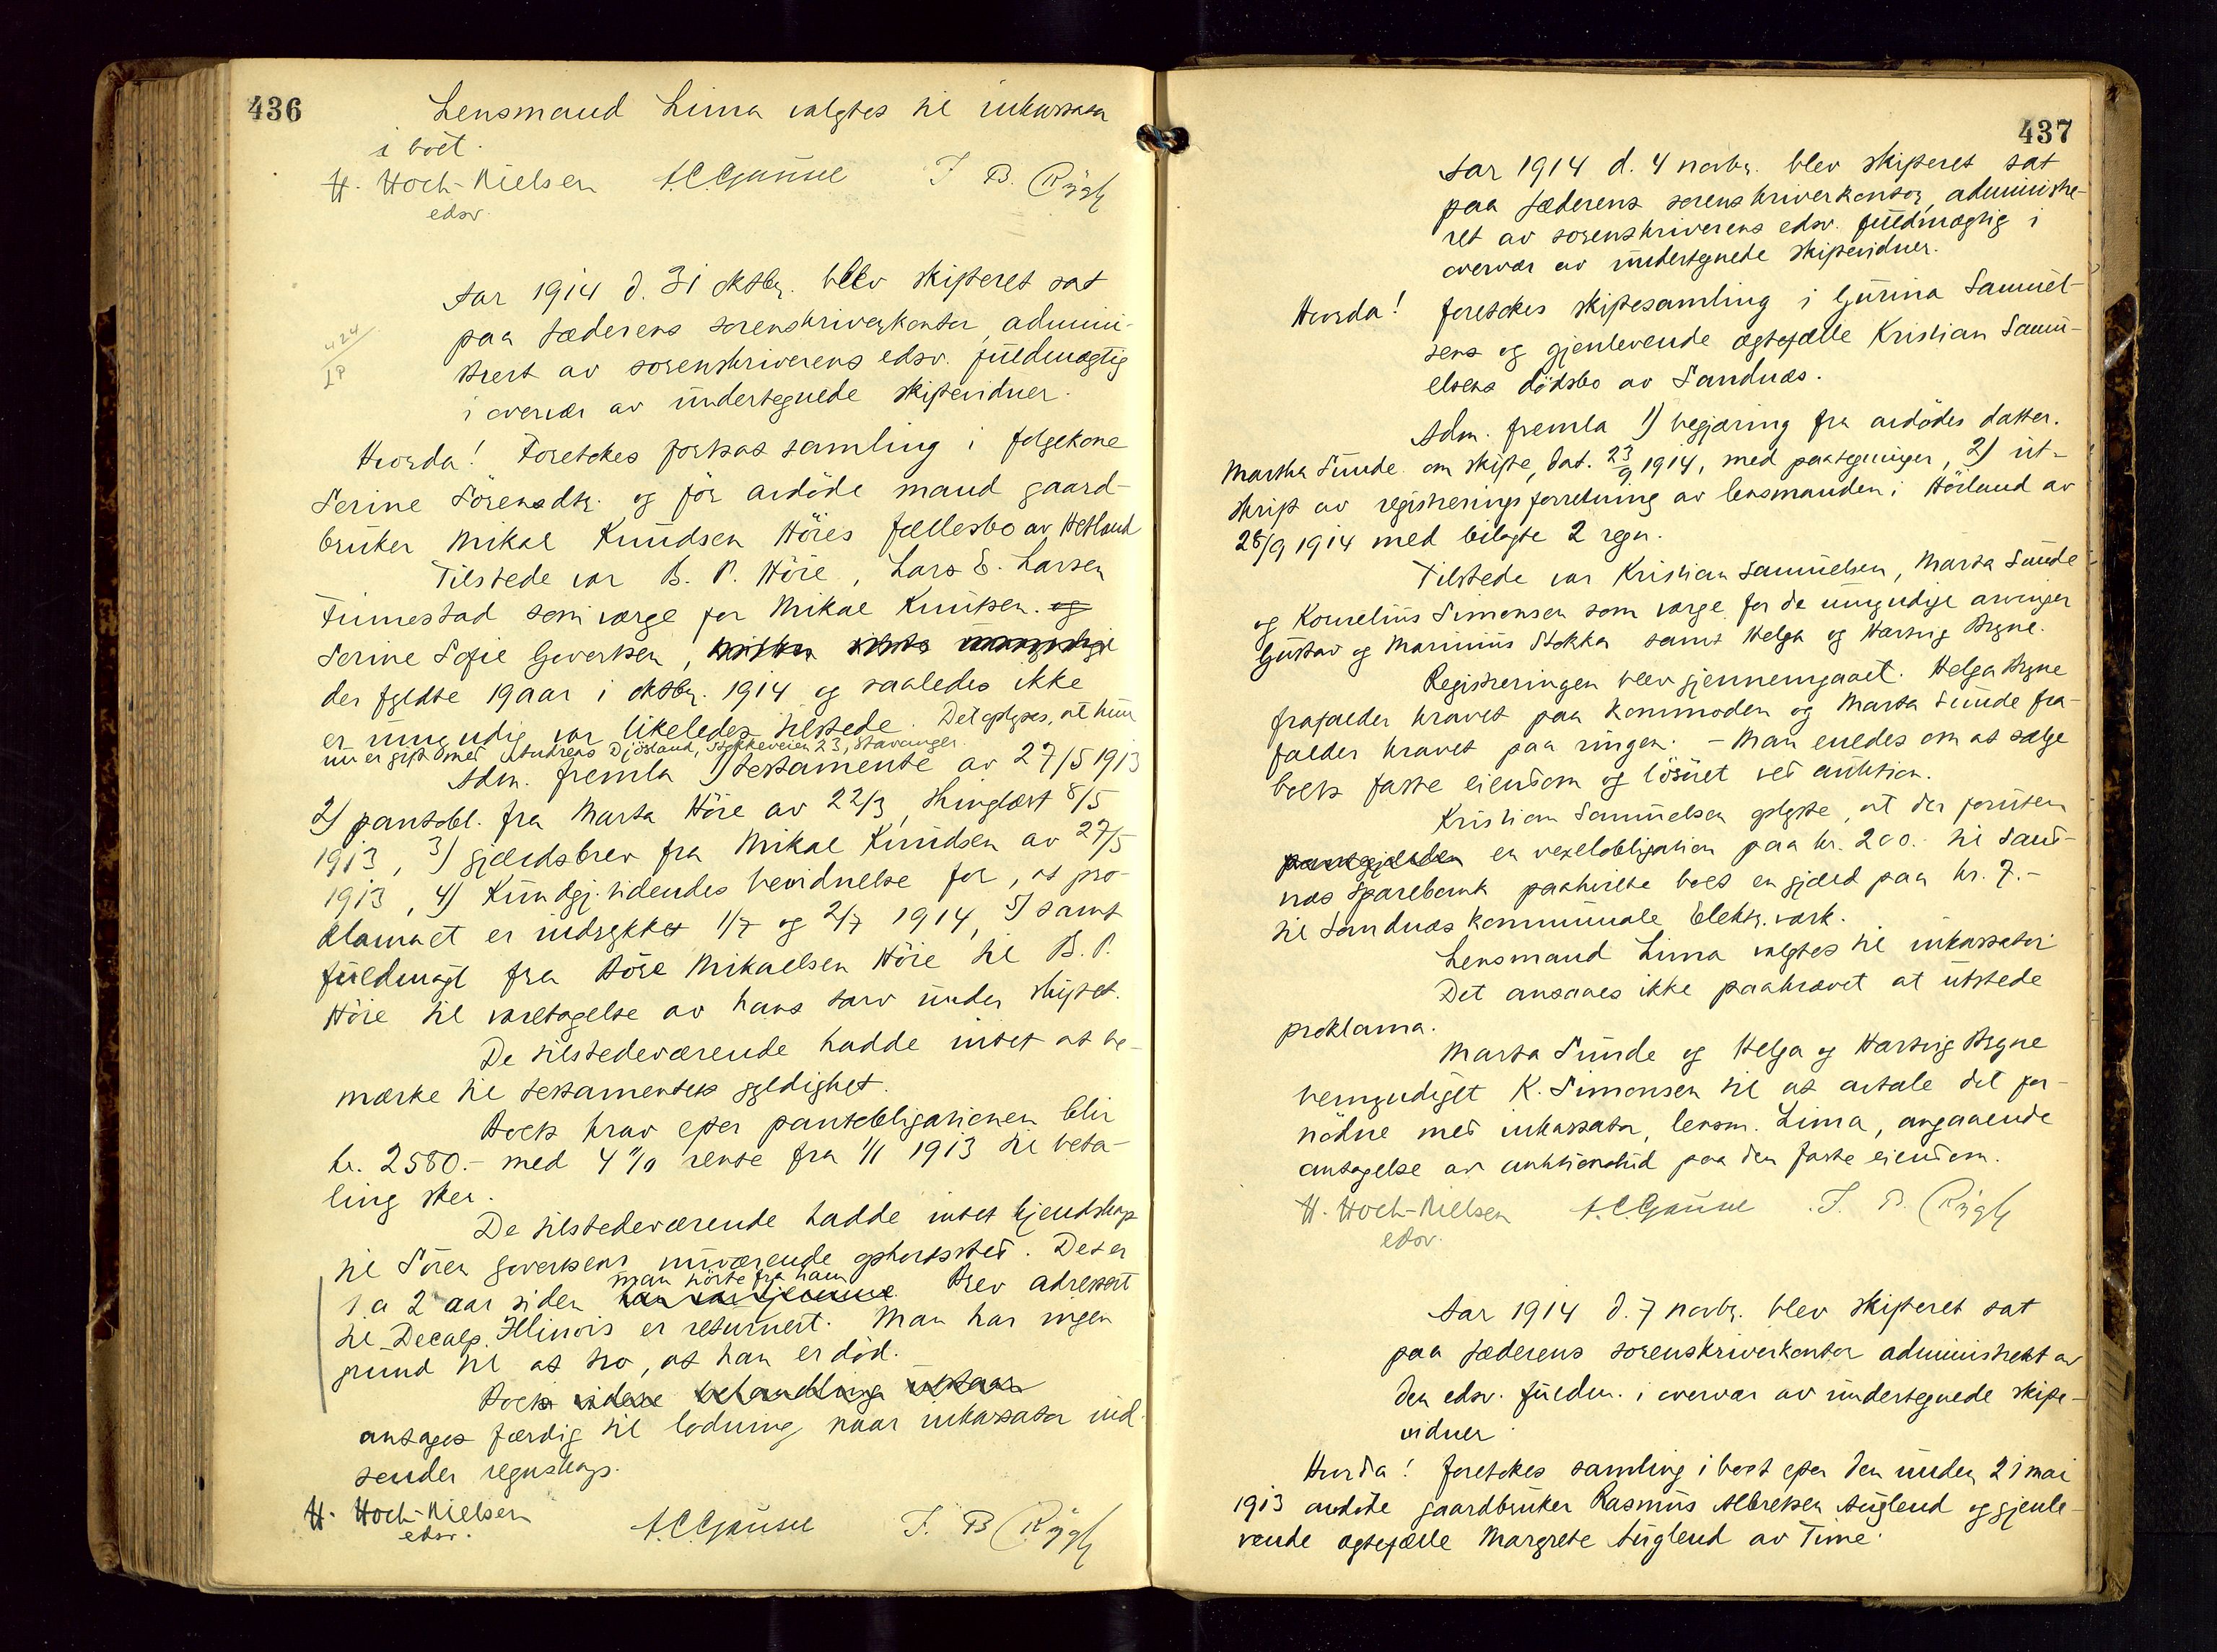 436
Lensmand Lima valgtes til inkassator
i boet.
H. Hoch-Nielsen A.C.Gausel T. B. Rygh
edsv.
424
Aar 1914 d. 31 oktbr. blev skifteret sat
paa Jæderens sorenskriverkontor, admini-
strert av sorenskriverens edsv. fuldmægtig
i overvær av undertegnede skiftevidner.
Hvorda! Foretokes fortsat samling i folgekone
Serine Sörensdtr. og för avdöde mand gaard-
bruker Mikal Knudsen Höies fællesbo av Hetland
Tilstede var B. P. Höie, Lars E. Larsen
Finnestad som værge for Mikal Knutsen. og
Serine Sofie Govertsen,
der fyldte 19 aar i oktbr. 1914 og saaledes ikke
er umyndig var likeledes tilstede. Det oplyses, at hun
nu er gift med Andreas Djösland, Stokkeveien 23, Stavanger.
Adm. fremla 1) testamente av 27/5 1913
2) pantobl. fra Marta Höie av 22/3, thinglæst 8/5
1913, 3) gjældsbrev fra Mikal Knudsen av 27/5
1913, 4) Kundgj. tidendes bevidnelse for, at pro-
klamaet er indrykket 1/7 og 2/7 1914, 5) samt
fuldmagt fra Tore Mikaelsen Höie til B. P.
Höie til varetagelse av hans tarv under skiftet.
De tilstedeværende hadde intet at be-
mærke til testamentets gyldighet.
Boets krav efter pantobligationen blir
kr. 2580.- med 4 % rente fra 1/1 1913 til beta-
ling sker.
De tilstedeværende hadde intet kjendskap
til Sören Govertsens nuværende opholdssted. Det er
man hörte fra ham
1 a 2 aar siden han var hjemme. Brev adressert
til Decalp. Illinois er returnert. Man har ingen
grund til at tro, at han er död.
Boets videre behandling utstaar
antages færdig til lodning, naar inkassator ind-
sender regnskap.
H. Hoch-Nielsen A.C.Gausel T. B. Rygh
edsv.
437
Aar 1914 d. 4 novbr. blev skifteret sat
paa Jæderens sorenskriverkontor, administre-
ret av sorenskriverens edsv. fuldmægtig i
overvær av undertegnede skiftevidner.
Hvorda! foretokes skiftesamling i Gurina Samuel-
sens og gjenlevende ægtefælle Kristian Samu-
elsens dödsbo av Sandnæs.
Adm. fremla 1) begjæring fra avdödes datter.
Martha Sunde om skifte, dat. 23/9 1914, med paategninger, 2) ut-
skrift av registreringsforretning av lensmanden i Höiland av
28/9 1914 med bilagte 2 regn.
Tilstede var Kristian Samuelsen, Marta Sunde
og Kornelius Simonsen som værge for de umyndige arvinger
Gustav og Marinius Stokka samt Helga og Hartvig Bryne.
Registreringen blev gjennemgaaet. Helga Bryne
frafalder kravet paa kommoden og Marta Sunde fra-
falder kravet paa ringen. - Man enedes om at sælge
boets faste eiendom og lösöret ved auktion.
Kristian Samuelsen oplyste, at der foruten
pantegjælden en vexelobligation paa kr. 200.- til Sand-
næs Sparebank paahvilte boet en gjæld paa kr. 7.-
til Sandnæs kommunale Elektr. værk.
Lensmand Lima valgtes til inkassator
Det ansaaes ikke paakrævet at utstede
proklama.
Marta Sunde og Helga og Hartvig Bryne
bemyndiget K. Simonsen til at avtale det for-
nödne med inkassator, lensm. Lima, angaaende
antagelse av auktionsbud paa den faste eiendom.
H. Hoch-Nielsen A.C.Gausel T. B. Rygh
edsv.
Aar 1914 d. 7 novbr. blev skifteret sat
paa Jæderens sorenskriverkontor administrert av
den edsv. fuldm. i overvær av undertegnede skifte-
vidner
Hvorda! foretokes samling i boet efter den under 21 mai
1913 avdöde gaardbruker Rasmus Albretsen Auglend og gjenle-
vende ægtefælle Margrete Auglend av Time.